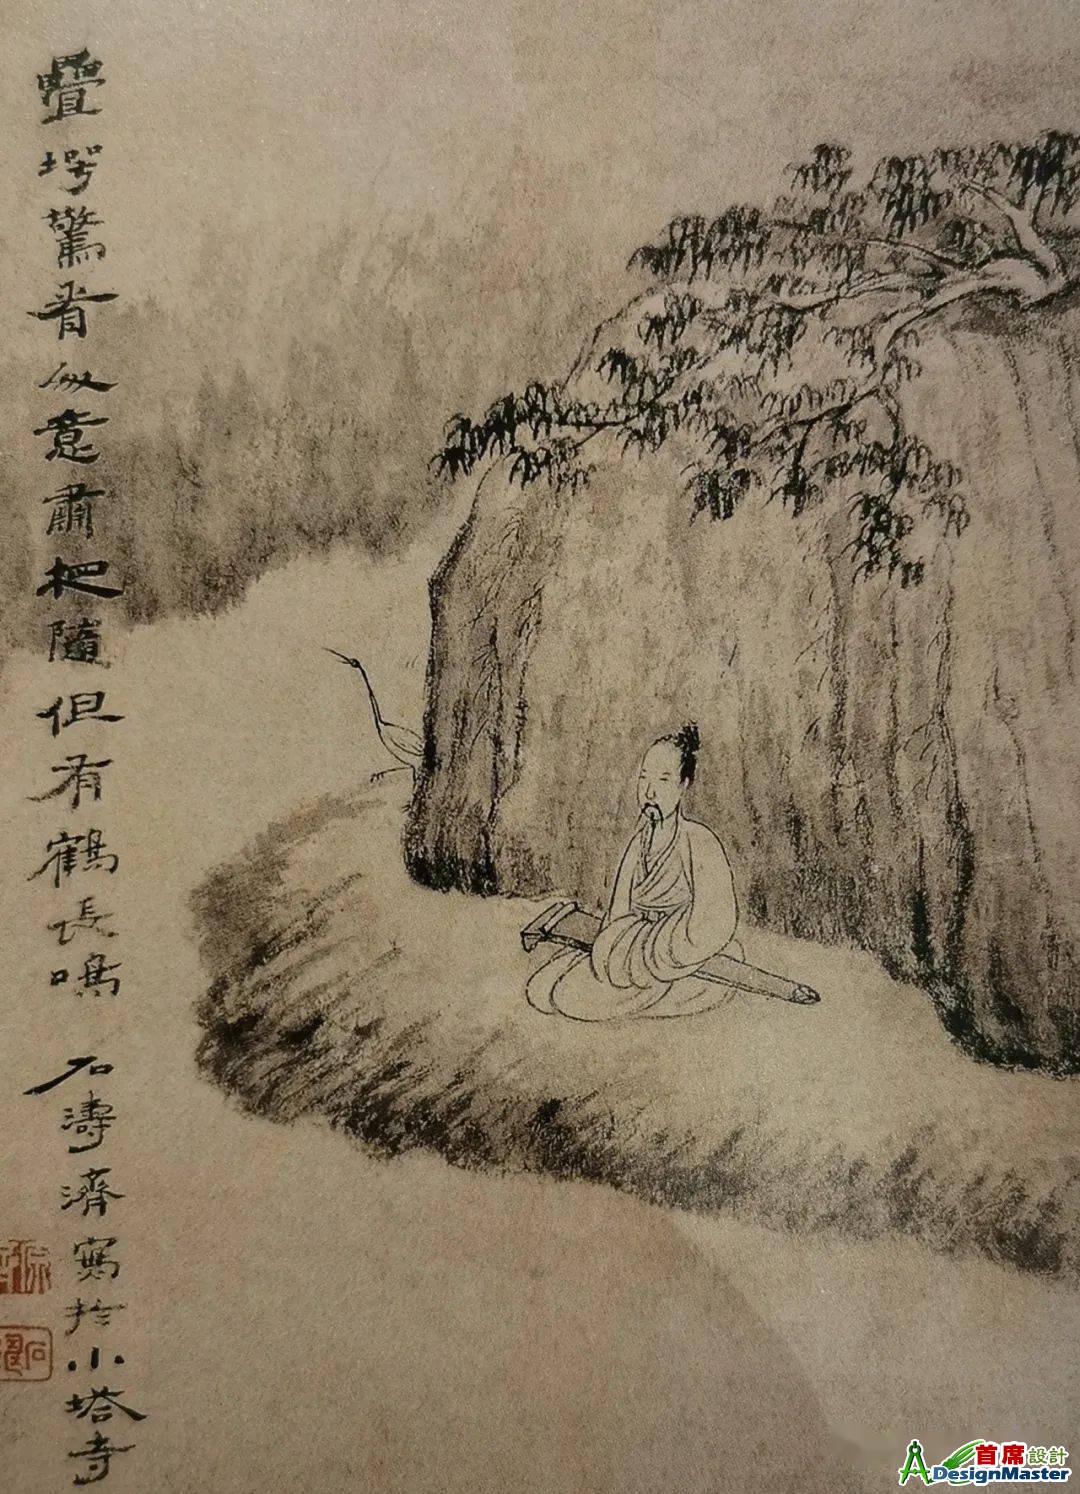 疊堮驚看似意肅把隨但有鶴長鳴 石濤濟寫於小塔寺
首席設計
DesignMaster